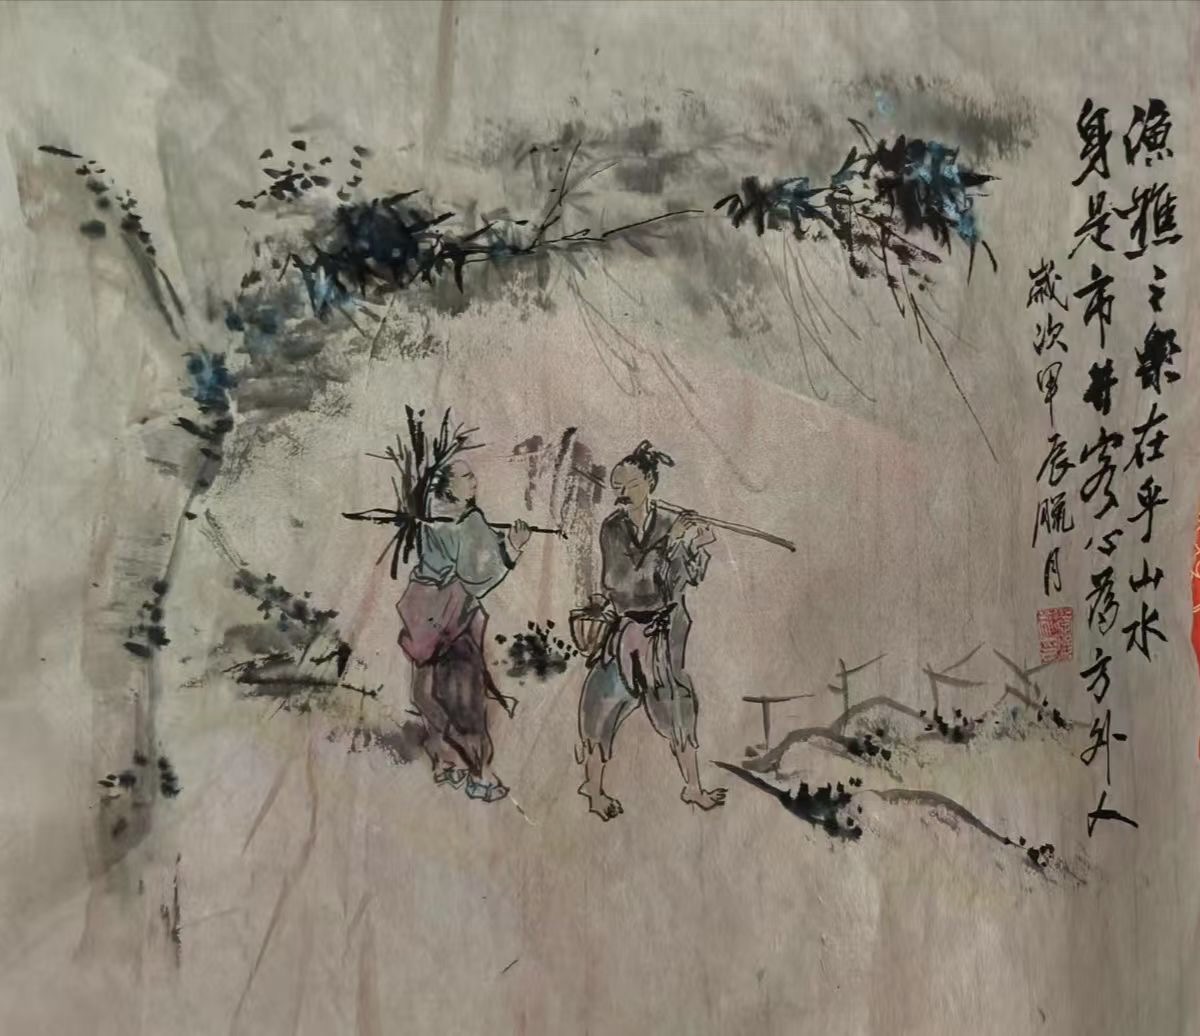 渔樵之樂在乎山水
身是市井客心為方外人
歲次甲辰臘月